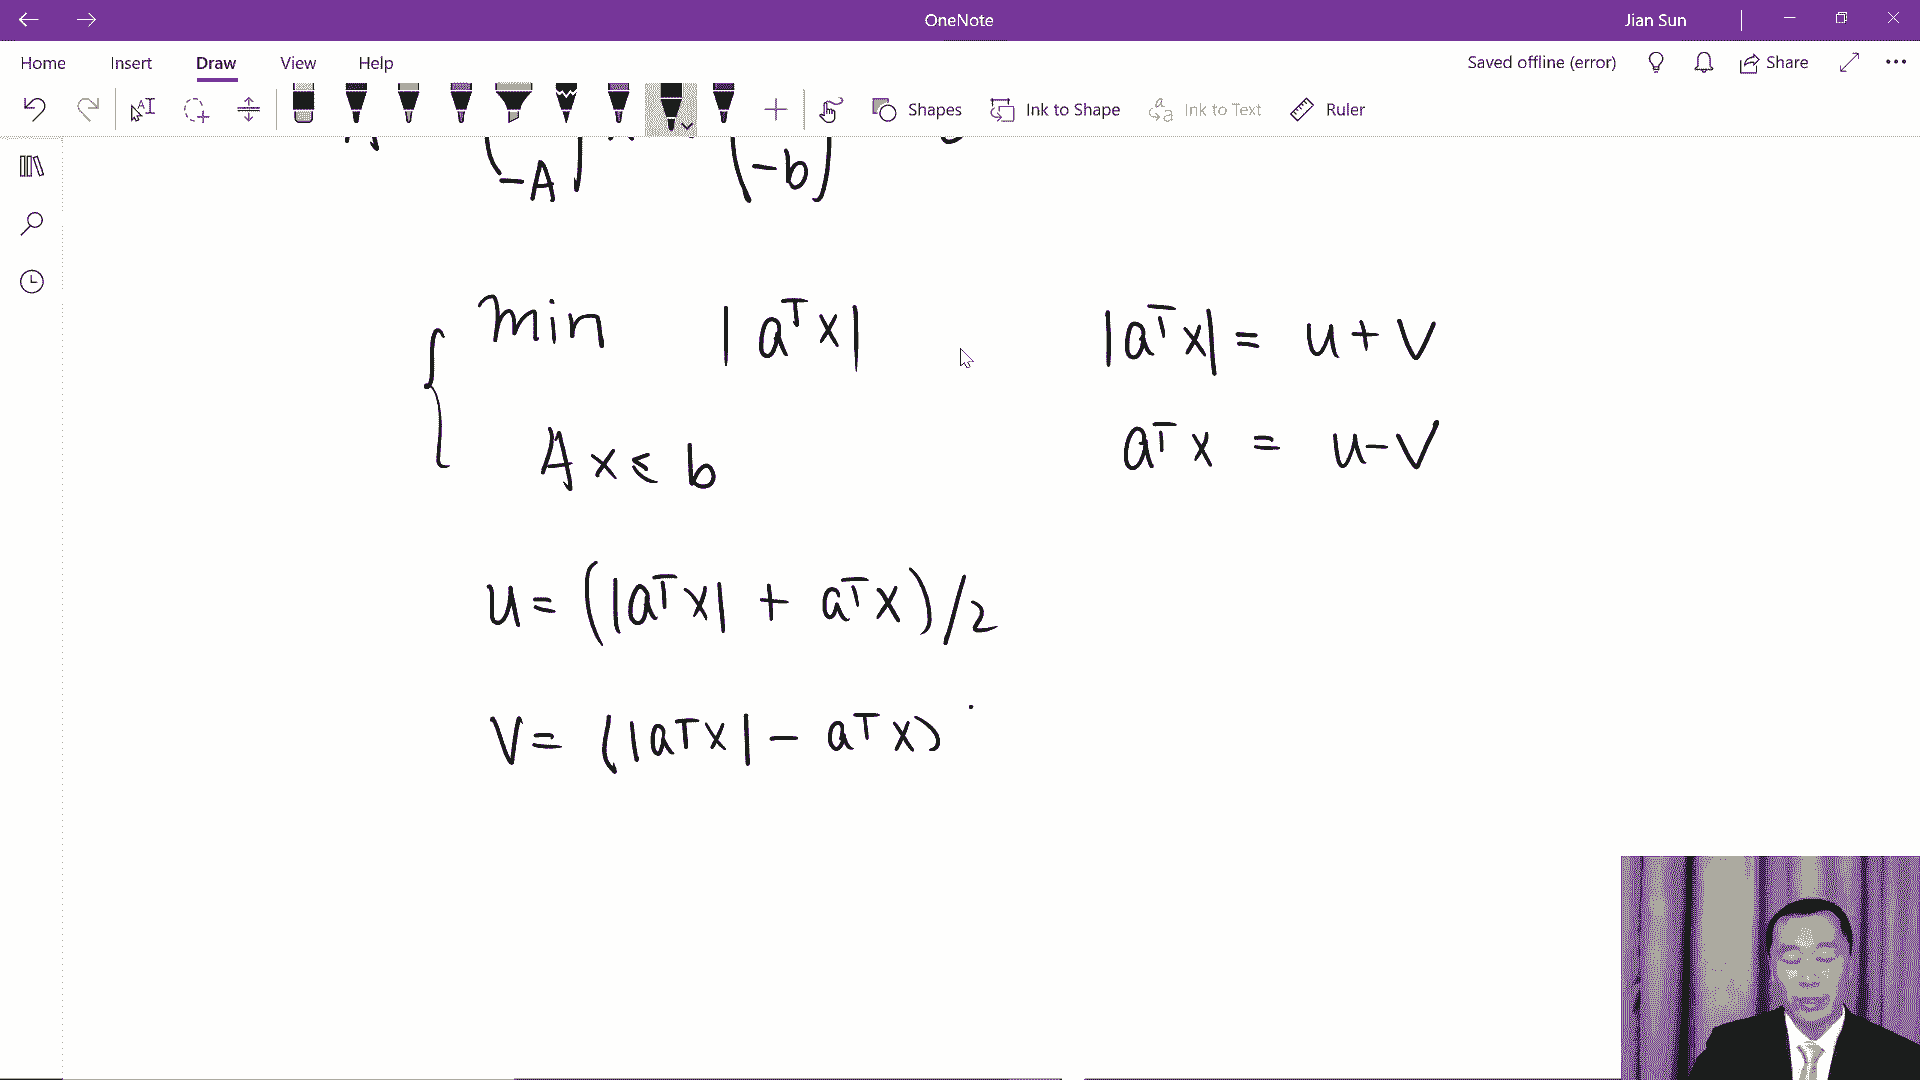 OneNote
Jian Sun
Home Insert Draw View Help
Saved offline (error) Share
Shapes Ink to Shape Ink to Text Ruler
-A
-b
min |aᵀx|
|aᵀx| = u + v
Ax ≤ b
aᵀx = u-v
u = (|aᵀx| + aᵀx)/2
v = (|aᵀx| - aᵀx)